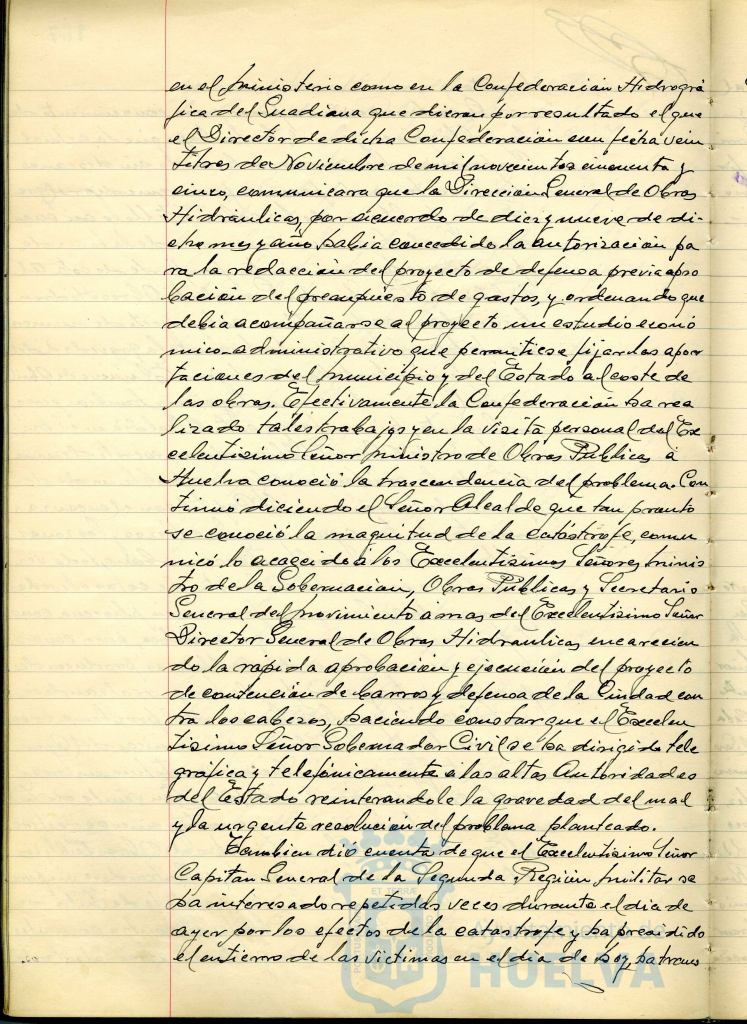 en el Ministerio como en la Confederación Hidrográ
fica del Guadiana que dieran por resultado el que
el Director de dicha Confederación con fecha vein
titres de Noviembre de mil novecientos cincuenta y
cinco, comunicara que la Dirección General de Obras
Hidráulicas, por acuerdo de diez y nueve de di-
cho mes y año había concedido la autorización pa
ra la redacción del proyecto de defensa previa apro
bación del presupuesto de gastos, y ordenando que
debia acompañarse al proyecto un estudio econó
mico-administrativo que permitiese fijar las apor
taciones del Municipio y del Estado al coste de
las obras. Efectivamente la Confederación ha rea
lizado tales trabajos y en la visita personal del Ex
celentisimo Señor Ministro de Obras Publicas á
Huelva conoció la trascendencia del problema. Con
tinuó diciendo el Señor Alcalde que tan pronto
se conoció la magnitud de la catástrofe, comu
nicó lo acaecido á los Excelentisimos Señores Minis
tro de la Gobernacion, Obras Publicas y Secretario
General del Movimiento á mas del Excelentisimo Señor
Director General de Obras Hidraulicas encarecien
do la rapida aprobacion y ejecución del proyecto
de contención de barros y defensa de la Ciudad con
tra los cabezos, haciendo constar que el Excelen
tisimo Señor Gobernador Civil se ha dirigido tele
gráfica y telefónicamente a las altas Autoridades
del Estado reinterandole la gravedad del mal
y la urgente resolución del problema planteado.
Tambien dió cuenta de que el Excelentisimo Señor
Capitan General de la Segunda Región Militar se
ha interesado repetidas veces durante el dia de
ayer por los efectos de la catastrofe y ha presidido
el entierro de las victimas en el dia de hoy, ha
HUELVA